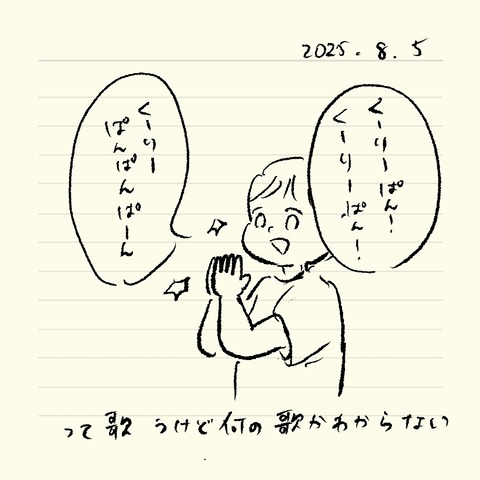 2025.8.5
くーりーぱん!
くーりーぱん!
くーりー
ぱんぱんぱーん
って歌うけど何の歌かわからない